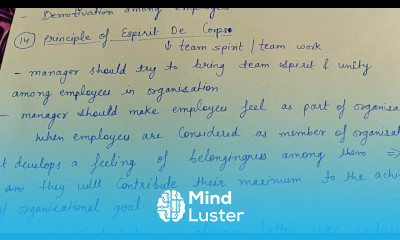 - Demotivation among employees
(14) Principle of Espirit De Corps.
↓ team spirit / team work
- manager should try to bring team spirit & unity
among employees in organisation
- manager should make employees feel as part of organisa
when employees are considered as member of organisat
it develops a feeling of belongingness among them ⇒
and they will contribute their maximum to the achi
of organisational goal.
Mind
Luster